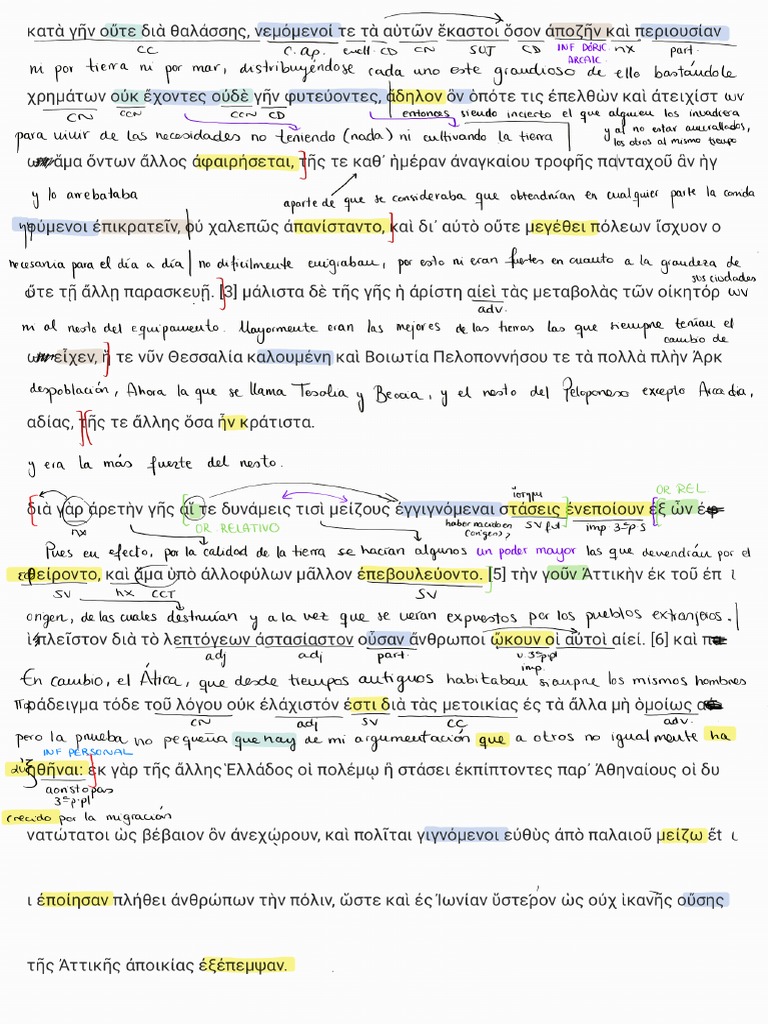 κατὰ γῆν οὔτε διὰ θαλάσσης, νεμόμενοί τε τὰ αὑτῶν ἕκαστοι ὅσον ἀποζῆν καὶ περιουσίαν
CC C. ap. encl. CD CN SUJ CD INF DÓRIC. ARCAIC nx part.
ni por tierra ni por mar, distribuyéndose cada uno este grandioso de ello bastándole
χρημάτων οὐκ ἔχοντες οὐδὲ γῆν φυτεύοντες, ἄδηλον ὂν ὁπότε τις ἐπελθὼν καὶ ἀτειχίστ ων
CN CCN CCN CD entonces siendo incierto el que alguien los invadiera
para vivir de las necesidades no teniendo (nada) ni cultivando la tierra y al no estar amurallados, los otros al mismo tiempo
ἅμα ὄντων ἄλλος ἀφαιρήσεται, τῆς τε καθ᾽ ἡμέραν ἀναγκαίου τροφῆς πανταχοῦ ἂν ἡγ
y lo arrebataba aparte de que se consideraba que obtendrían en cualquier parte la comida
ηγούμενοι ἐπικρατεῖν, οὐ χαλεπῶς ἀπανίσταντο, καὶ δι᾽ αὐτὸ οὔτε μεγέθει πόλεων ἴσχυον ο
necesaria para el día a día no dificilmente emigraban, por esto ni eran fuertes en cuanto a la grandeza de sus ciudades
ὔτε τῇ ἄλλῃ παρασκευῇ. [3] μάλιστα δὲ τῆς γῆς ἡ ἀρίστη αἰεὶ τὰς μεταβολὰς τῶν οἰκητόρ ων
adv.
ni al resto del equipamento. Mayormente eran las mejores de las tierras las que siempre tenían el cambio de
εἶχεν, ἥ τε νῦν Θεσσαλία καλουμένη καὶ Βοιωτία Πελοποννήσου τε τὰ πολλὰ πλὴν Ἀρκ
despoblación, Ahora la que se llama Tesalia y Beocia, y el resto del Peloponeso excepto Arcadia,
αδίας, τῆς τε ἄλλης ὅσα ἦν κράτιστα.
y era la más fuerte del resto.
διὰ γὰρ ἀρετὴν γῆς αἵ τε δυνάμεις τισὶ μείζους ἐγγιγνόμεναι στάσεις ἐνεποίουν ἐξ ὧν ἐφ
nx OR RELATIVO haber nacido en (origen), ἵστημι SV fut imp 3ª p S OR REL
Pues en efecto, por la calidad de la tierra se hacían algunos un poder mayor las que devendrán por el
θείροντο, καὶ ἅμα ὑπὸ ἀλλοφύλων μᾶλλον ἐπεβουλεύοντο. [5] τὴν γοῦν Ἀττικὴν ἐκ τοῦ ἐπ ι
SV nx CCT SV
origen, de las cuales destruían y a la vez que se veran expuestos por los pueblos extranjeros.
πλεῖστον διὰ τὸ λεπτόγεων ἀστασίαστον οὖσαν ἄνθρωποι ᾤκουν οἱ αὐτοὶ αἰεί. [6] καὶ
adj adj part. v. 3ª p. pl imp.
En cambio, el Ática, que desde tiempos antiguos habitaban siempre los mismos hombres
παράδειγμα τόδε τοῦ λόγου οὐκ ἐλάχιστόν ἐστι διὰ τὰς μετοικίας ἐς τὰ ἄλλα μὴ ὁμοίως
CN adj SV CC adv.
pero la prueba no pequeña que hay de mi argumentación que a otros no igualmente ha
INF PERSONAL
αὐξηθῆναι: ἐκ γὰρ τῆς ἄλλης Ἑλλάδος οἱ πολέμῳ ἢ στάσει ἐκπίπτοντες παρ᾽ Ἀθηναίους οἱ δυ
aoristo pas 3ª p. pl
crecido por la migración
νατώτατοι ὡς βέβαιον ὂν ἀνεχώρουν, καὶ πολῖται γιγνόμενοι εὐθὺς ἀπὸ παλαιοῦ μείζω ἔτ ι
ι ἐποίησαν πλήθει ἀνθρώπων τὴν πόλιν, ὥστε καὶ ἐς Ἰωνίαν ὕστερον ὡς οὐχ ἱκανῆς οὔσης
τῆς Ἀττικῆς ἀποικίας ἐξέπεμψαν.